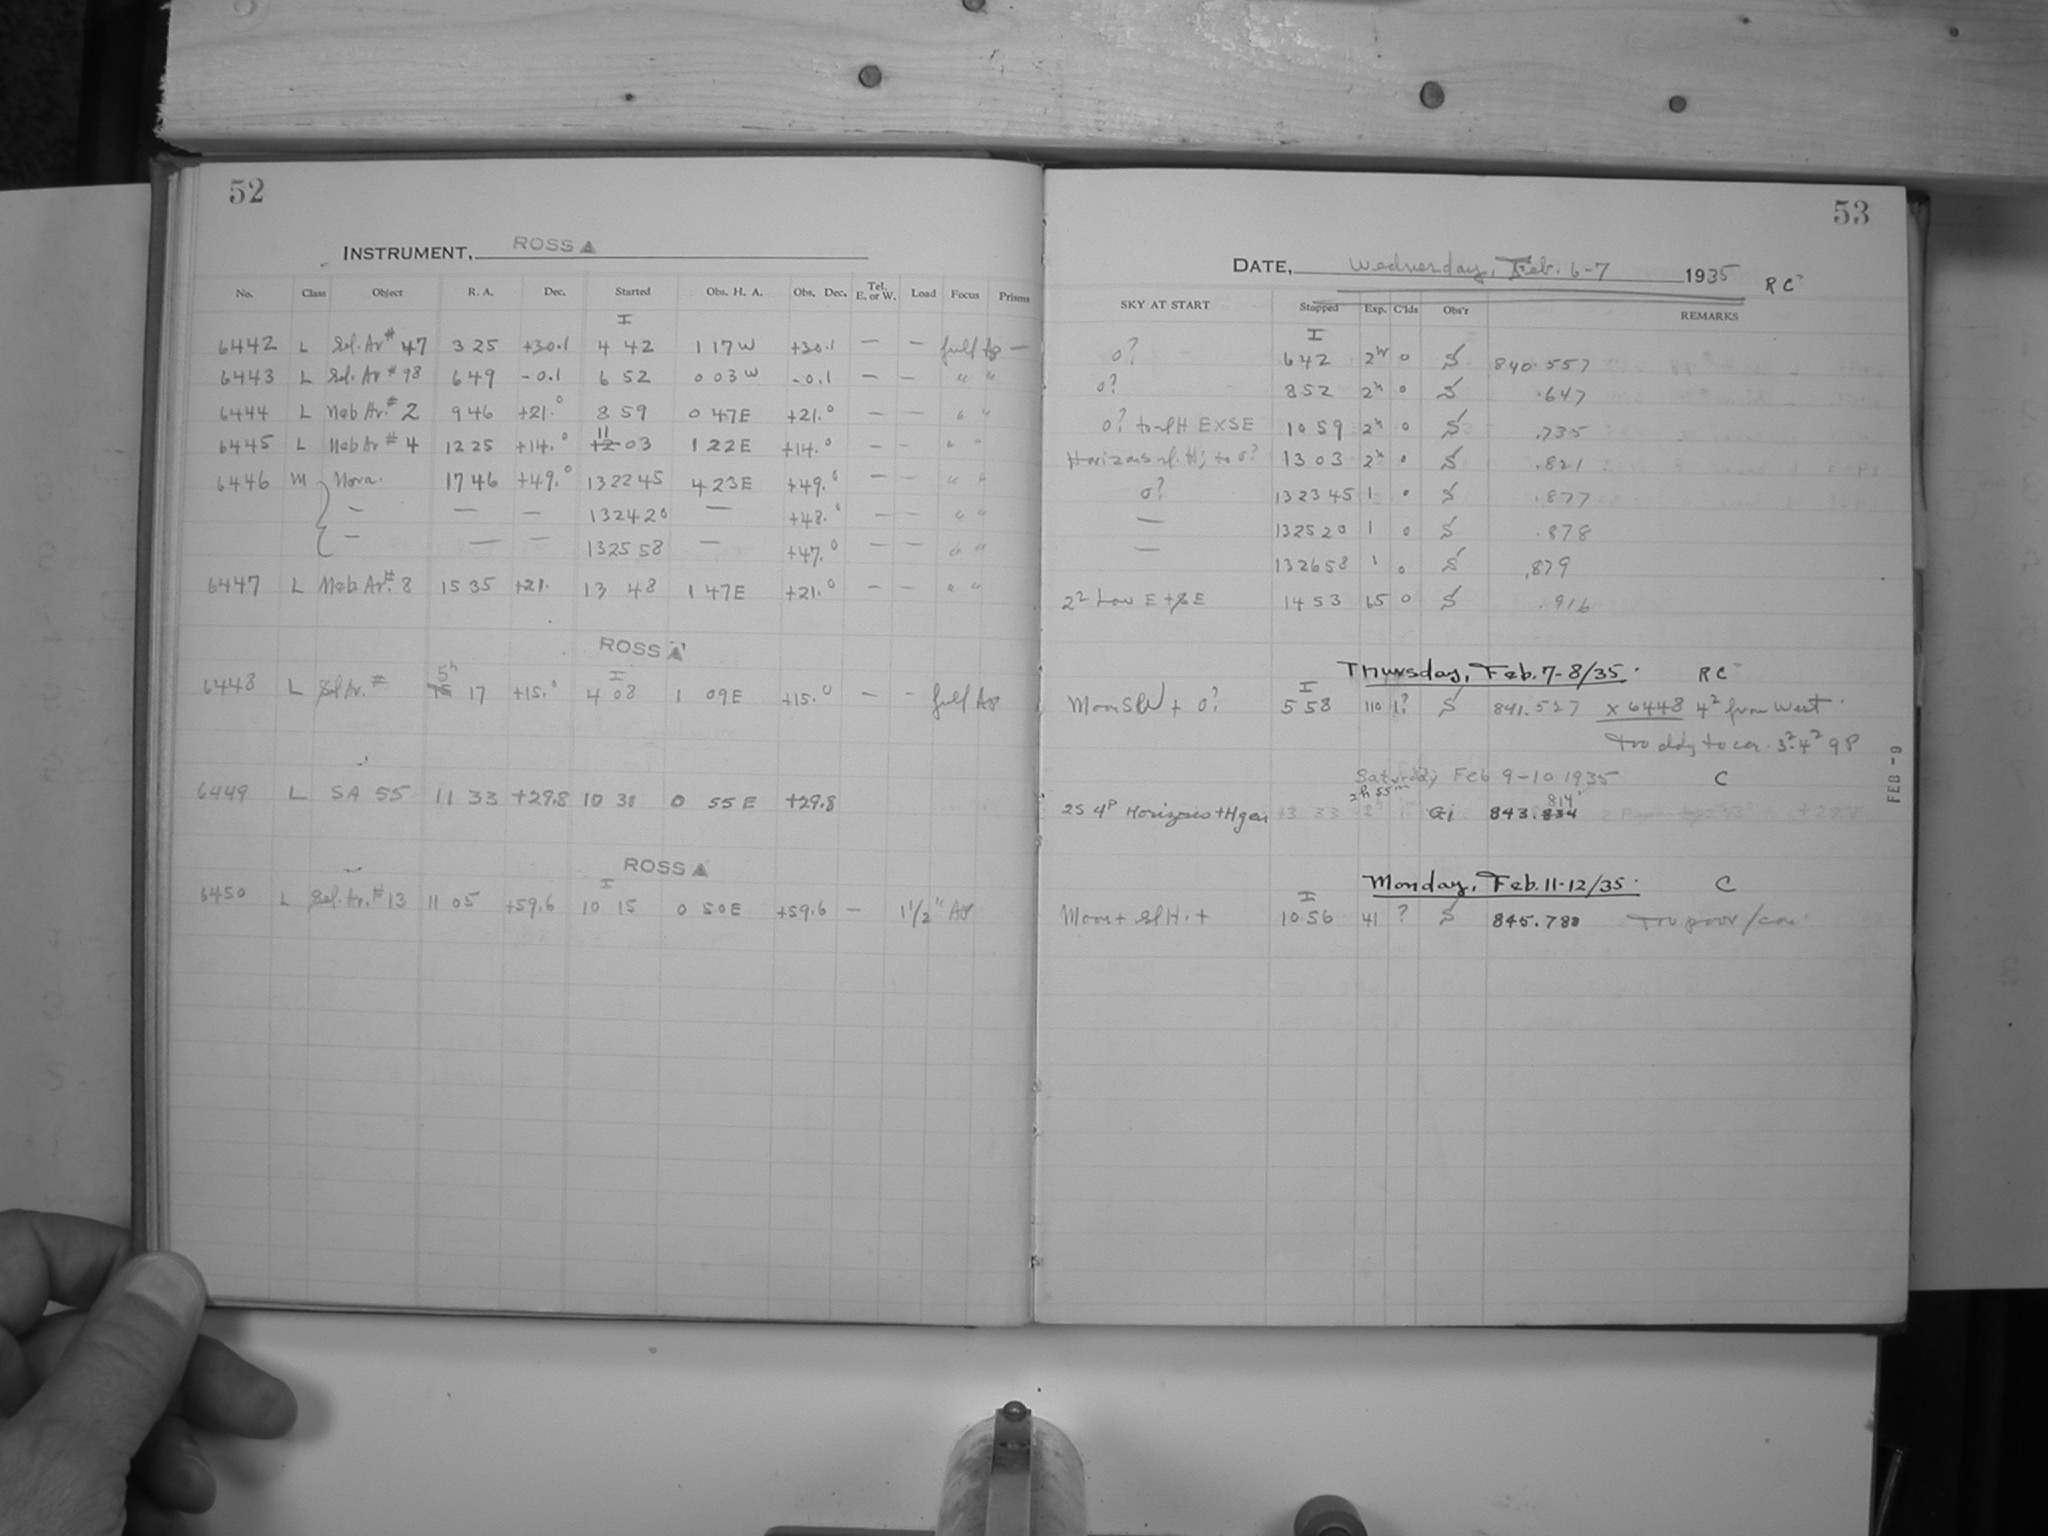 52
INSTRUMENT, ROSS A
No. Class Object R. A. Dec. Started Obs. H. A. Obs. Dec. Tel. E. or W. Load Focus Prisms
I
6442 L Sel. Ar # 47 3 25 +30.1 4 42 1 17 W +30.1 — — full Ap —
6443 L Sel. Ar # 98 6 49 -0.1 6 52 0 03 W -0.1 — — " "
6444 L Neb Ar. # 2 9 46 +21.0 8 59 0 47 E +21.0 — — " "
6445 L Neb Ar # 4 12 25 +14.0 11 03 1 22 E +14.0 — — " "
6446 M Nova. 17 46 +49.0 13 22 45 4 23 E +49.0 — — " "
— — — 13 24 20 — +48.0 — — " "
— — — 13 25 58 — +47.0 — — " "
6447 L Neb Ar. # 8 15 35 +21. 13 48 1 47 E +21.0 — — " "
ROSS A
5h I
6448 L Sel Ar. # 17 +15.0 4 08 1 09 E +15.0 — - full Ap
6449 L SA 55 11 33 +29.8 10 38 0 55 E +29.8
ROSS A
I
6450 L Sel. Ar. # 13 11 05 +59.6 10 15 0 50 E +59.6 — 1 1/2" Ap
53
DATE, Wednesday, Feb. 6-7 1935 RC
SKY AT START Stopped Exp. C'lds Obs'r REMARKS
I
0? 6 42 2h 0 S 840.557
0? 8 52 2h 0 S .647
0? to sl H E x SE 10 59 2h 0 S .735
Horizons sl. H; to 0? 13 03 2h 0 S .821
0? 13 23 45 1 0 S .877
— 13 25 20 1 0 S .878
— 13 26 58 1 0 S .879
2² Low E + SE 14 53 65 0 S .916
Thursday, Feb. 7-8/35. RC
I
Moon SW + 0? 5 58 110 1? S 841.527 x 6448 4² from West.
Too cldy to con. 3².4² 9P
Saturday Feb 9-10 1935 C
2h 55m 814
25 4P Horizons + H gen 13 33 Gi 843.834
FEB -9
Monday, Feb. 11-12/35. C
I
Moon + sl H. + 10 56 41 ? S 845.788 Too poor/con.